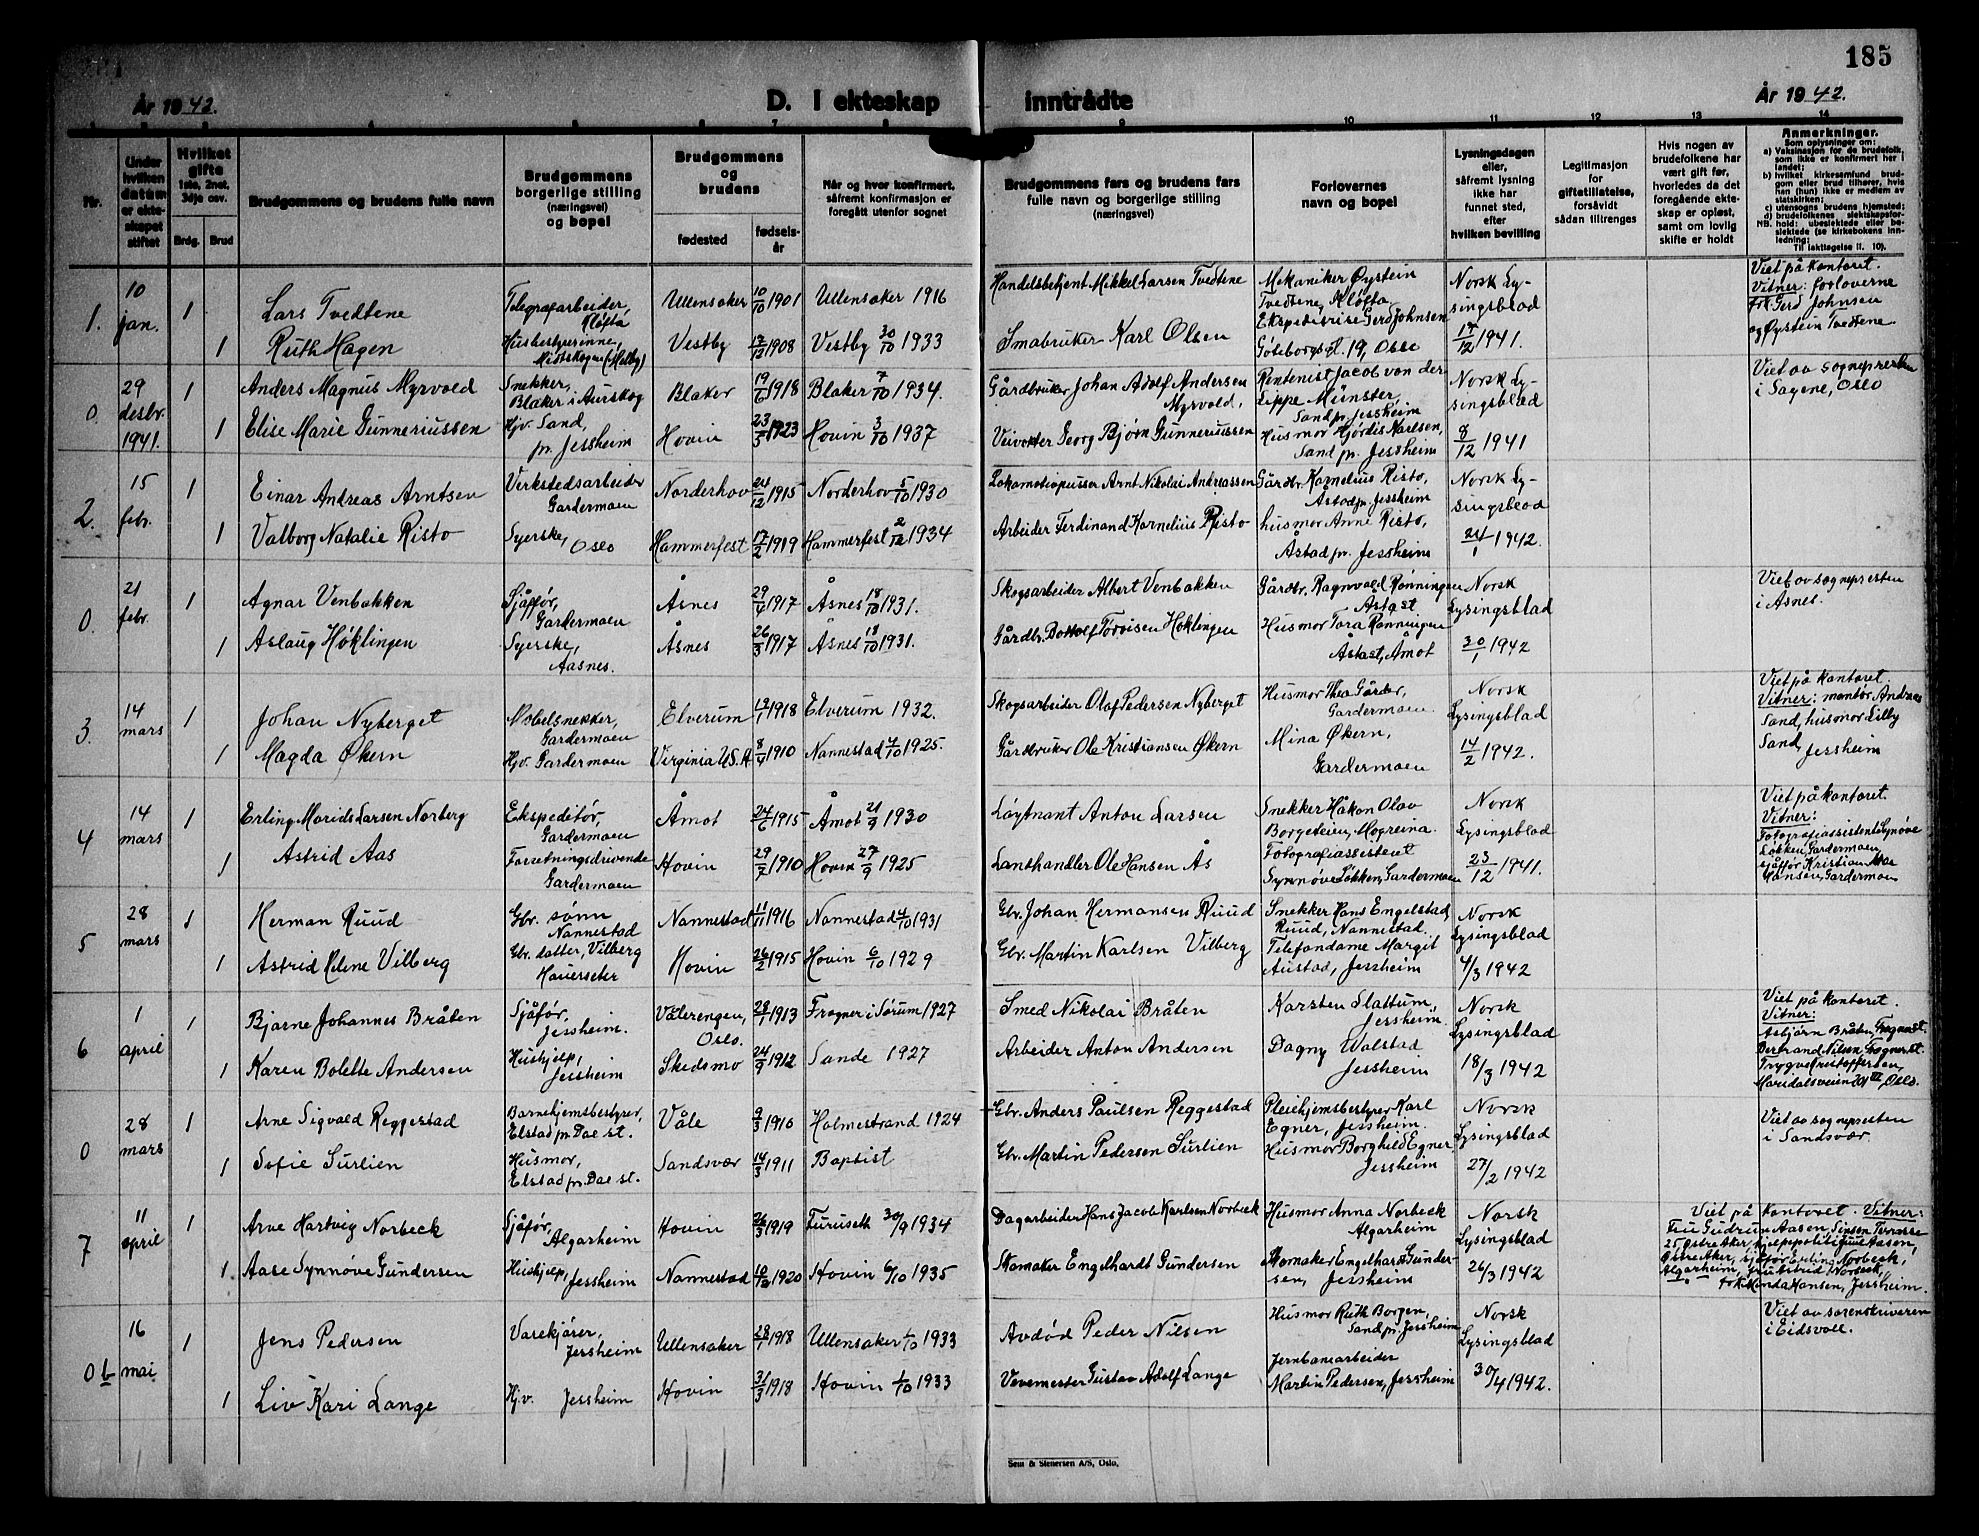 185
År 1942.
D. I ekteskap inntrådte
År 1942.
1 2 3 4 5 6 7 8 9 10 11 12 13 14
Nr.
Under hvilken datum er ekteskapet stiftet
Hvilket gifte 1ste, 2net, 3dje osv.
Brdg. Brud
Brudgommens og brudens fulle navn
Brudgommens borgerlige stilling (næringsvei) og bopel
Brudgommens og brudens
fødested
fødselsår
Når og hvor konfirmert, såfremt konfirmasjon er foregått utenfor sognet
Brudgommens fars og brudens fars fulle navn og borgerlige stilling (næringsvei)
Forlovernes navn og bopel
Lysningsdagen eller, såfremt lysning ikke har funnet sted, efter hvilken bevilling
Legitimasjon for giftetillatelse, forsåvidt sådan tiltrenges
Hvis nogen av brudefolkene har vært gift før, hvorledes da det foregående ekteskap er opløst, samt om lovlig skifte er holdt
Anmerkninger.
Som oplysninger om:
a) Vaksinasjon for de brudefolk, som ikke er konfirmert her i landet;
b) hvilket kirkesamfund brudgom eller brud tilhører, hvis han (hun) ikke er medlem av statskirken;
c) utensogns brudens hjemsted;
d) brudefolkenes slektskapsforhold: ubeslektede eller beslektede (se kirkebokens innledning; Til iakttagelse II. 10).
NB.
1. 10 jan. 1 Lars Tvedtene Telegrafarbeider, Kløfta Ullensaker 10/10 1901 Ullensaker 1916 Handelsbetjent Mikkel Larsen Tvedtene Mekaniker Øystein Tvedtene, Kløfta, Norsk Lysingsblad 17/12 1941. Viet på kontoret. Vitner: forloverne frk. Gerd Johnsen og Øystein Tvedtene.
1 Ruth Hagen Husbestyrerinne, Midtskogen (Melby) Vestby 13/12 1908 Vestby 30/10 1933 Småbruker Karl Olsen Ekspeditrise Gerd Johnsen Göteborggt. 19, Oslo
0 29 desbr. 1941. 1 Anders Magnus Myrvold Snekker, Blaker i Aurskog Blaker 19/6 1918 Blaker 7/10 1934. Gårdbruker Johan Adolf Andersen Myrvold, Rentenist Jacob von der Lippe Münster, Sand pr. Jessheim Norsk Lysingsblad 8/12 1941 Viet av sognepresten i Sagene, Oslo
1 Elise Marie Gunneriussen Hjv. Sand, pr. Jessheim Hovin 23/3 1923 Hovin 3/10 1937 Veivokter Georg Bjørn Gunneriussen Husmor Hjørdis Karlsen, Sand pr. Jessheim
2. 15 febr. 1 Einar Andreas Arntsen Verkstedsarbeider Gardermoen Norderhov 24/12 1915 Norderhov 5/10 1930 Lokomotivpusser Arnt Nikolai Andreassen Gårdbr. Kornelius Risto, Åstad pr. Jessheim Norsk Lysingsblad 24/1 1942.
1 Valborg Natalie Risto Syerske, Oslo Hammerfest 17/2 1919 Hammerfest 2/12 1934 Arbeider Ferdinand Kornelius Risto husmor Anne Risto, Åstad pr. Jessheim
0. 21 febr. 1 Agnar Venbakken Sjåffør, Gardermoen Åsnes 29/4 1917 Åsnes 18/10 1931. Skogsarbeider Albert Venbakken Gårdbr. Ragnvald Rønningen Åstast Norsk Lysingsblad 30/1 1942 Viet av sognepresten i Åsnes.
1 Aslaug Høklingen Syerske, Aasnes. Åsnes 26/3 1917 Åsnes 18/10 1931. Gårdbr. Bottolf Torvisen Høklingen Husmor Tora Rønningen Åstast, Åmot
3. 14 mars 1 Johan Nyberget Møbelsnekker, Gardermoen Elverum 19/1 1918 Elverum 1932. Skogsarbeider Olaf Pedersen Nyberget Husmor Thea Gårder, Gardermoen. Norsk Lysingsblad 14/2 1942. Viet på kontoret. Vitner: montør Andreas Sand, husmor Lilly Sand, Jessheim
1 Magda Økern Hjv. Gardermoen Virginia U.S.A 8/4 1910 Nannestad 4/10 1925. Gårdbruker Ole Kristiansen Økern Mina Økern, Gardermoen
4 14 mars 1 Erling Marids Larsen Norberg Ekspeditør, Gardermoen Åmot 24/6 1915 Åmot 21/9 1930 Løytnant Anton Larsen Snekker Håkon Olav Borgeteien, Mogreina. Norsk Lysingsblad 23/12 1941. Viet på kontoret. Vitner: Fotografiassistent Synøve Løkken, Gardermoen, sjåffør Kristian Moe Hansen, Gardermoen
1 Astrid Aas Forretningsdrivende Gardermoen Hovin 29/7 1910 Hovin 27/9 1925 Lanthandler Ole Hansen Ås Fotografiassistent Synnøve Løkken, Gardermoen
5 28 mars 1 Herman Ruud Gbr. sønn Nannestad Nannestad 11/11 1916 Nannestad 4/10 1931 Gbr. Johan Hermansen Ruud Snekker Hans Engelstad, Ruud, Nannestad. Norsk Lysingsblad 4/3 1942
1 Astrid Helene Vilberg Gbr. datter, Vilberg Hauerseter Hovin 26/2 1915 Hovin 6/10 1929 Gbr. Martin Karlsen Vilberg Telefondame Margit Austad, Jessheim
6 1 april 1 Bjarne Johannes Bråten Sjåfør, Jessheim. Vålerengen, Oslo. 28/1 1913 Frogner i Sørum 1927 Smed Nikolai Bråten Karsten Slattum, Jessheim. Norsk Lysingsblad 18/3 1942 Viet på kontoret. Vitner: Asbjørn Bråten, Frogner st. Bertrand Nilsen Frogner st. Trygve Kristoffersen, Maridalsveien
1 Karen Bolette Andersen Hushjelp, Jessheim Skedsmo 24/9 1912 Sande 1927 Arbeider Anton Andersen Dagny Walstad Jessheim
0 28 mars 1 Arne Sigvald Reggestad Barnehjemsbestyrer, Elstad pr. Dal st. Våle 9/3 1910 Holmestrand 1924 Gbr. Anders Paulsen Reggestad Pleiehjemsbestyrer Karl Egner, Jessheim. Norsk Lysingsblad 27/2 1942 Viet av sognepresten i Sandsvær.
1 Sofie Surlien Husmor, Elstad pr. Dal st. Sandsvær 14/3 1911 Baptist Gbr. Martin Pedersen Surlien Husmor Borghild Egner Jessheim
7 11 april 1 Arve Hartvig Norbeck Sjåfør, Algarheim Hovin 26/3 1919 Furuseth 30/9 1934 Dagarbeider Hans Jacob Karlsen Norbeck Husmor Anna Norbeck Algarheim Norsk Lysingsblad 26/3 1942 Viet på kontoret. Vitner: Fru Gudrun Aasen, Sinsen Terrasse 25 Østre Aker, hjelpepoliti Juul Aasen, Østre Aker, sjåfør Erling Norbeck, Algarheim, fru Astrid Norbeck, frk. Hansen, Jessheim.
1. Aase Synnøve Gundersen Hushjelp, Jessheim Nannestad 10/12 1920 Hovin 6/10 1935 Skomaker Engelhardt Gundersen Skomaker Engelhardt Gundersen, Jessheim
0 b 16 mai 1 Jens Pedersen Varekjører, Jessheim Ullensaker 28/1 1918 Ullensaker 1/10 1933 Avdød Peder Nilsen Husmor Ruth Borgen, Sand pr. Jessheim Norsk Lysingsblad 30/4 1942. Viet av sorenskriveren i Eidsvoll.
1 Liv Kari Lange Hj.v. Jessheim Hovin 31/3 1918 Hovin 1/10 1933 Vevemester Gustav Adolf Lange Jernbanearbeider Martin Pedersen, Jessheim
Sem & Stenersen A/S, Oslo.